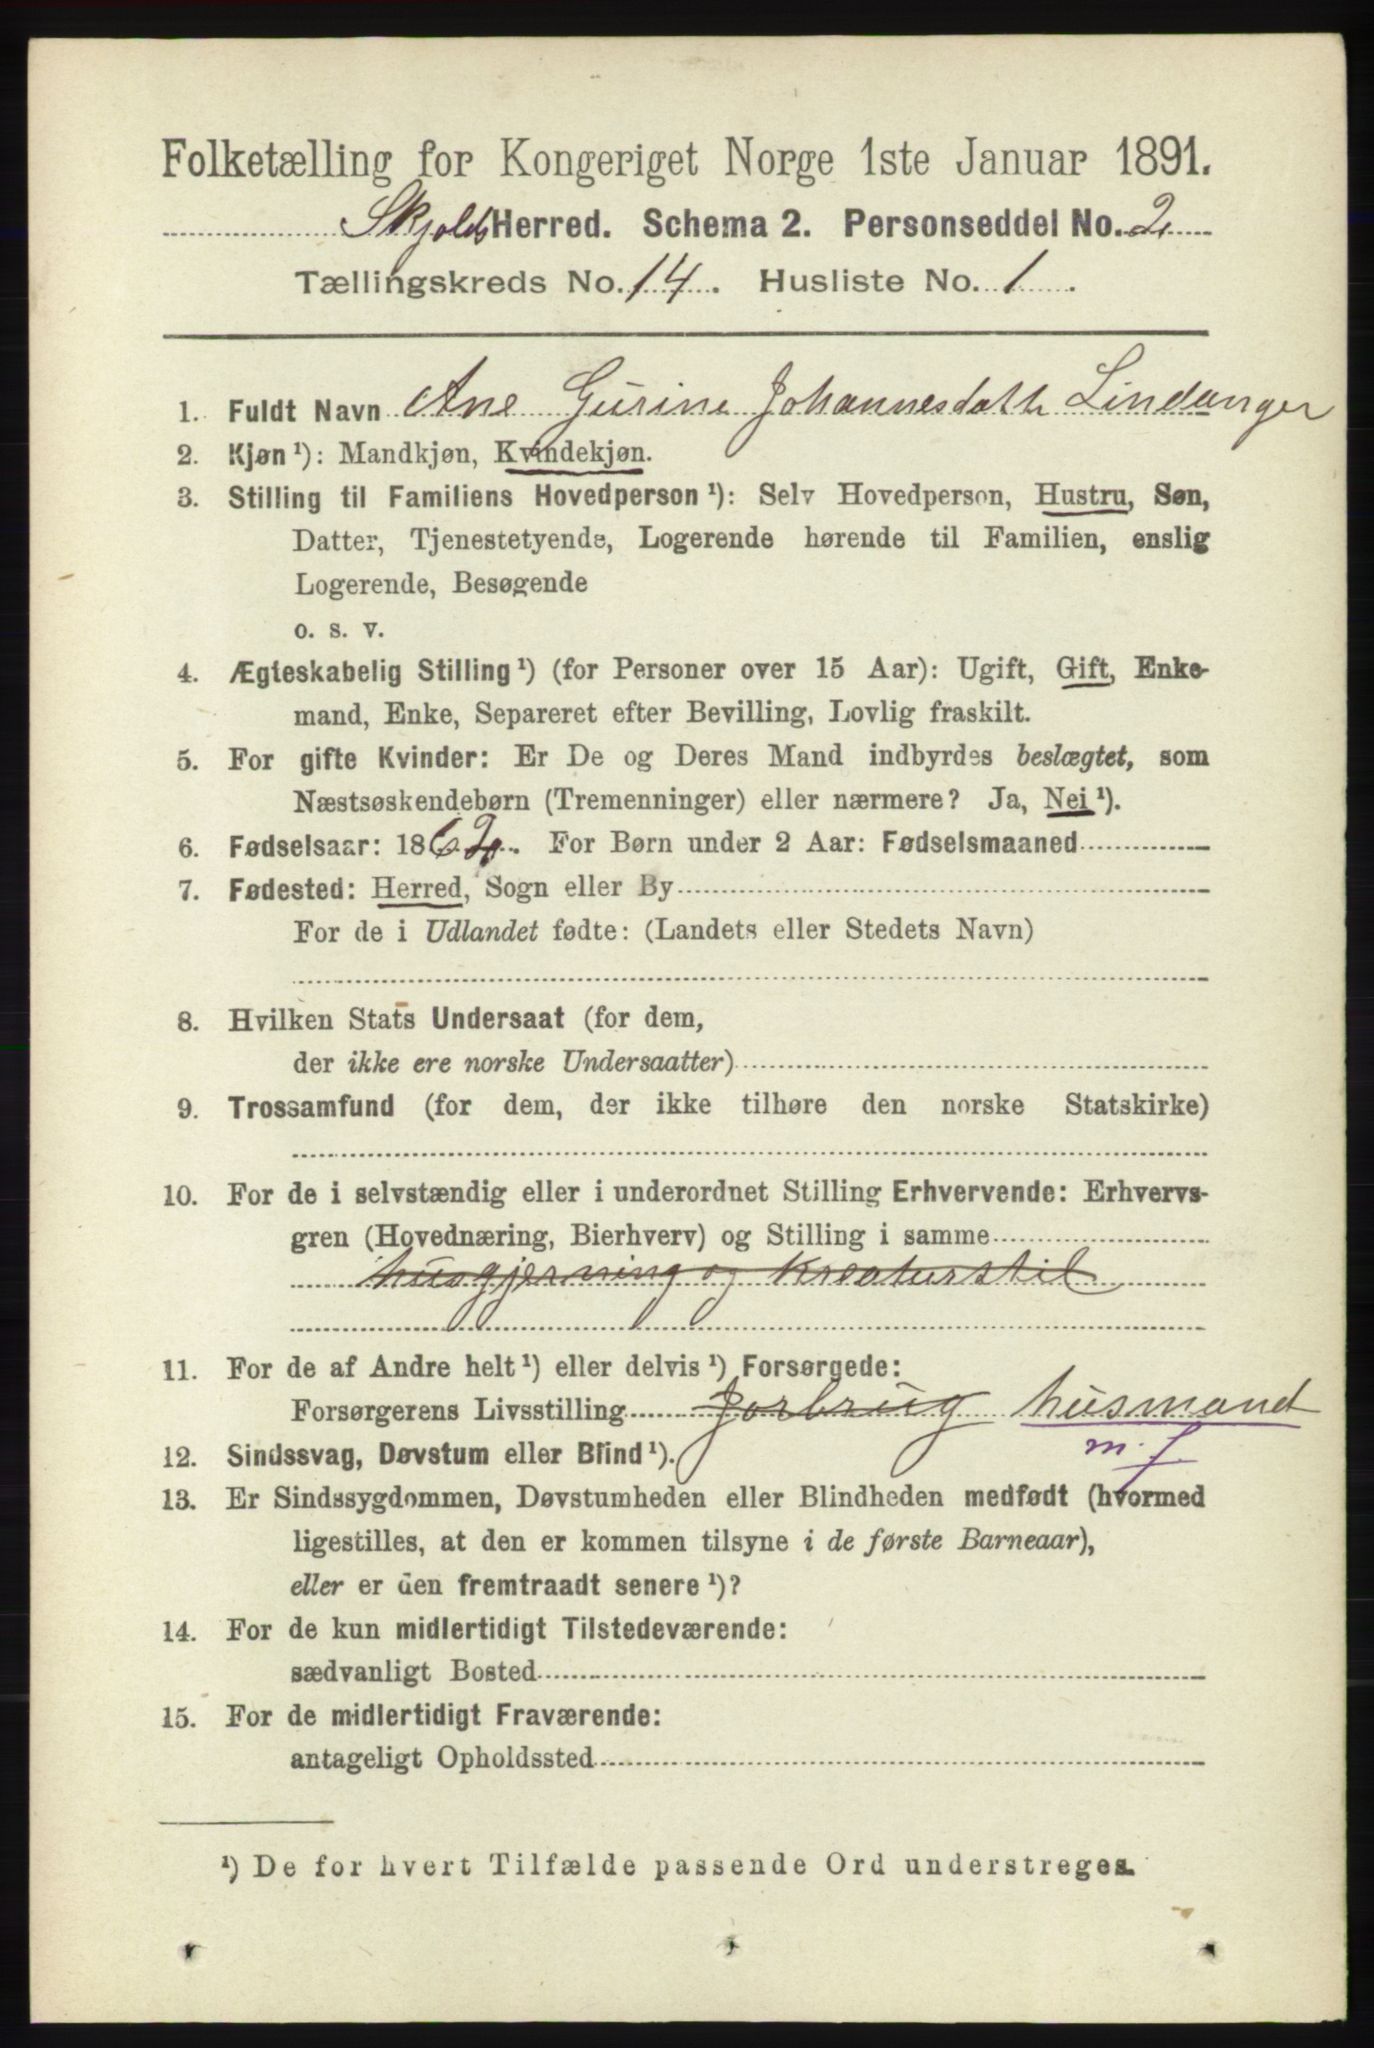 Folketælling for Kongeriget Norge 1ste Januar 1891.
Skjolds Herred. Schema 2. Personseddel No. 2
Tællingskreds No. 14. Husliste No. 1.
1. Fuldt Navn Ane Gurine Johannesdatt Lindanger
2. Kjøn¹): Mandkjøn, Kvindekjøn.
3. Stilling til Familiens Hovedperson¹): Selv Hovedperson, Hustru, Søn,
Datter, Tjenestetyende, Logerende hørende til Familien, enslig
Logerende, Besøgende
o. s. v.
4. Ægteskabelig Stilling¹) (for Personer over 15 Aar): Ugift, Gift, Enke-
mand, Enke, Separeret efter Bevilling, Lovlig fraskilt.
5. For gifte Kvinder: Er De og Deres Mand indbyrdes beslægtet, som
Næstsøskendebørn (Tremenninger) eller nærmere? Ja, Nei¹).
6. Fødselsaar: 1862. For Børn under 2 Aar: Fødselsmaaned
7. Fødested: Herred, Sogn eller By
For de i Udlandet fødte: (Landets eller Stedets Navn)
8. Hvilken Stats Undersaat (for dem,
der ikke ere norske Undersaatter)
9. Trossamfund (for dem, der ikke tilhøre den norske Statskirke)
10. For de i selvstændig eller i underordnet Stilling Erhvervende: Erhvervs-
gren (Hovednæring, Bierhverv) og Stilling i samme
husgjerning og Kreaturstil
11. For de af Andre helt¹) eller delvis¹) Forsørgede:
Forsørgerens Livsstilling Jorbrug husmand
m. J.
12. Sindssvag, Døvstum eller Blind¹).
13. Er Sindssygdommen, Døvstumheden eller Blindheden medfødt (hvormed
ligestilles, at den er kommen tilsyne i de første Barneaar),
eller er den fremtraadt senere¹)?
14. For de kun midlertidigt Tilstedeværende:
sædvanligt Bosted
15. For de midlertidigt Fraværende:
antageligt Opholdssted
¹) De for hvert Tilfælde passende Ord understreges.